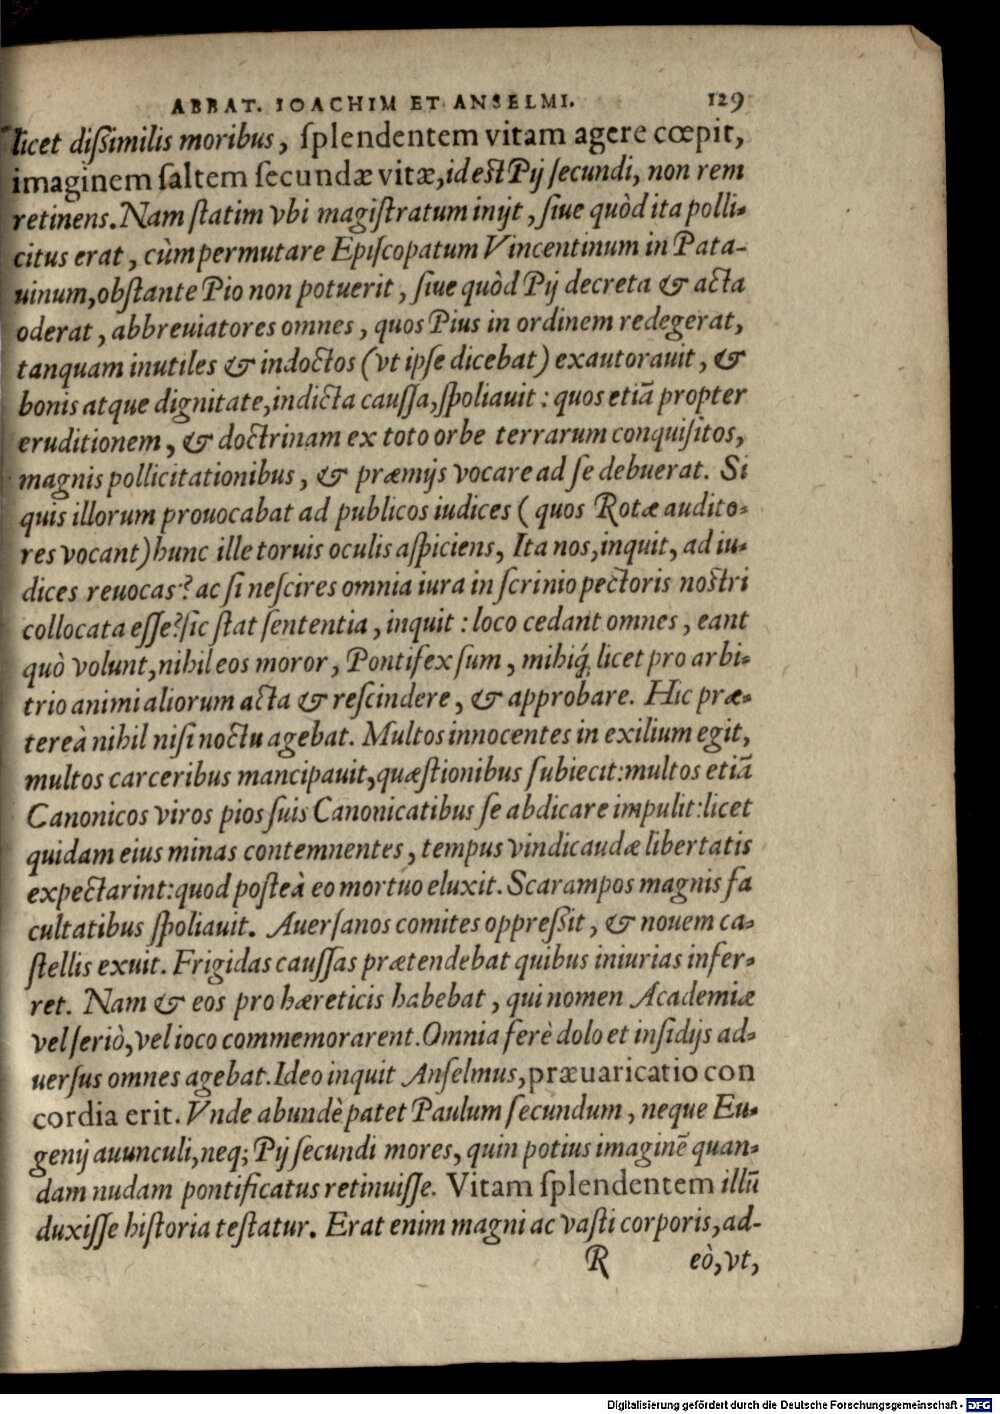 ABBAT. IOACHIM ET ANSELMI. 129
licet dißimilis moribus, ſplendentem vitam agere cœpit,
imaginem ſaltem ſecundæ vitæ, id eſt Pij ſecundi, non rem
retinens. Nam ſtatim vbi magiſtratum inijt, ſiue quòd ita polli-
citus erat, cùm permutare Epiſcopatum Vincentinum in Pata-
uinum, obſtante Pio non potuerit, ſiue quòd Pij decreta & acta
oderat, abbreuiatores omnes, quos Pius in ordinem redegerat,
tanquam inutiles & indoctos (vt ipſe dicebat) exautorauit, &
bonis atque dignitate, indicta cauſſa, ſpoliauit: quos etiã propter
eruditionem, & doctrinam ex toto orbe terrarum conquiſitos,
magnis pollicitationibus, & præmijs vocare ad ſe debuerat. Si
quis illorum prouocabat ad publicos iudices (quos Rotæ audito-
res vocant) hunc ille toruis oculis aſpiciens, Ita nos, inquit, ad iu-
dices reuocas? ac ſi neſcires omnia iura in ſcrinio pectoris noſtri
collocata eſſe? ſic ſtat ſententia, inquit: loco cedant omnes, eant
quò volunt, nihil eos moror, Pontifex ſum, mihiq́; licet pro arbi-
trio animi aliorum acta & reſcindere, & approbare. Hic præ-
tereà nihil niſi noctu agebat. Multos innocentes in exilium egit,
multos carceribus mancipauit, quæſtionibus ſubiecit: multos etiã
Canonicos viros pios ſuis Canonicatibus ſe abdicare impulit: licet
quidam eius minas contemnentes, tempus vindicaudæ libertatis
expectarint: quod poſteà eo mortuo eluxit. Scarampos magnis fa
cultatibus ſpoliauit. Auerſanos comites oppreßit, & nouem ca-
ſtellis exuit. Frigidas cauſſas prætendebat quibus iniurias infer-
ret. Nam & eos pro hæreticis habebat, qui nomen Academiæ
vel ſeriò, vel ioco commemorarent. Omnia ferè dolo et inſidijs ad-
uerſus omnes agebat. Ideo inquit Anſelmus, præuaricatio con
cordia erit. Vnde abundè patet Paulum ſecundum, neque Eu-
genij auunculi, neq; Pij ſecundi mores, quin potius imaginẽ quan-
dam nudam pontificatus retinuiſſe. Vitam ſplendentem illũ
duxiſſe hiſtoria teſtatur. Erat enim magni ac vaſti corporis, ad-
R eò, vt,
Digitalisierung gefördert durch die Deutsche Forschungsgemeinschaft - DFG